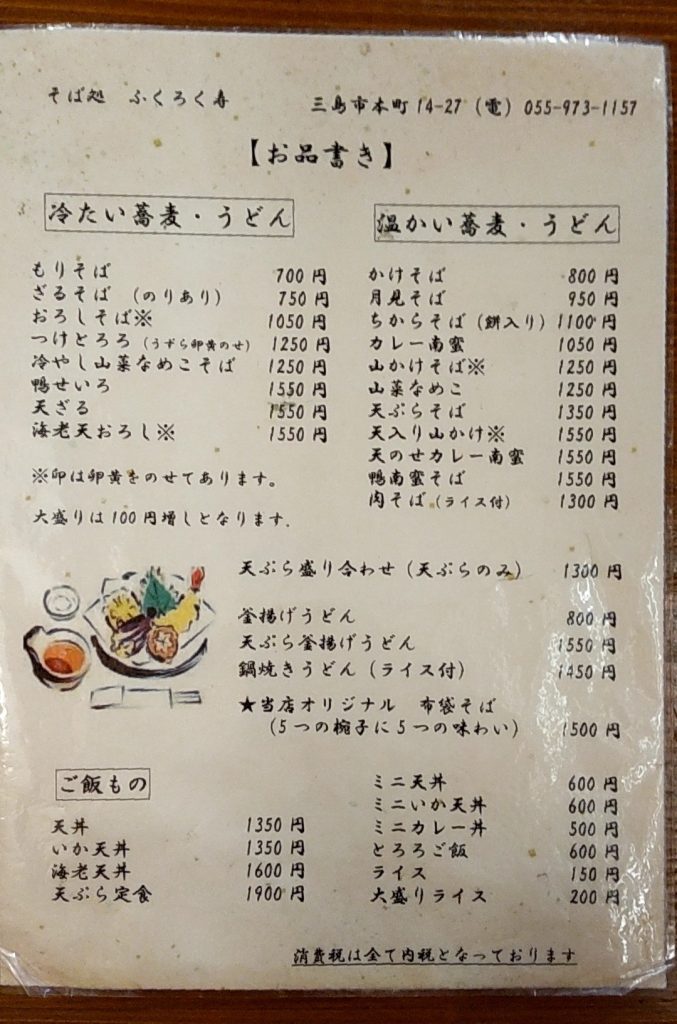 そば処 ふくろく寿
三島市本町14-27 (電) 055-973-1157
【お品書き】
冷たい蕎麦・うどん
もりそば 700円
ざるそば (のりあり) 750円
おろしそば※ 1050円
つけとろろ (うずら卵黄のせ) 1250円
冷やし山菜なめこそば 1250円
鴨せいろ 1550円
天ざる 1550円
海老天おろし※ 1550円
※卯は卵黄をのせてあります。
大盛りは100円増しとなります.
温かい蕎麦・うどん
かけそば 800円
月見そば 950円
ちからそば (餅入り) 1100円
カレー南蜜 1050円
山かけそば※ 1250円
山菜なめこ 1250円
天ぷらそば 1350円
天入り山かけ※ 1550円
天のせカレー南蜜 1550円
鴨南蜜そば 1550円
肉そば (ライス付) 1300円
天ぷら盛り合わせ (天ぷらのみ) 1300円
釜揚げうどん 800円
天ぷら釜揚げうどん 1550円
鍋焼きうどん (ライス付) 1450円
★当店オリジナル 布袋そば
(5つの椀子に5つの味わい) 1500円
ご飯もの
天丼 1350円
いか天丼 1350円
海老天丼 1600円
天ぷら定食 1900円
ミニ天丼 600円
ミニいか天丼 600円
ミニカレー丼 500円
とろろご飯 600円
ライス 150円
大盛りライス 200円
消費税は全て内税となっております